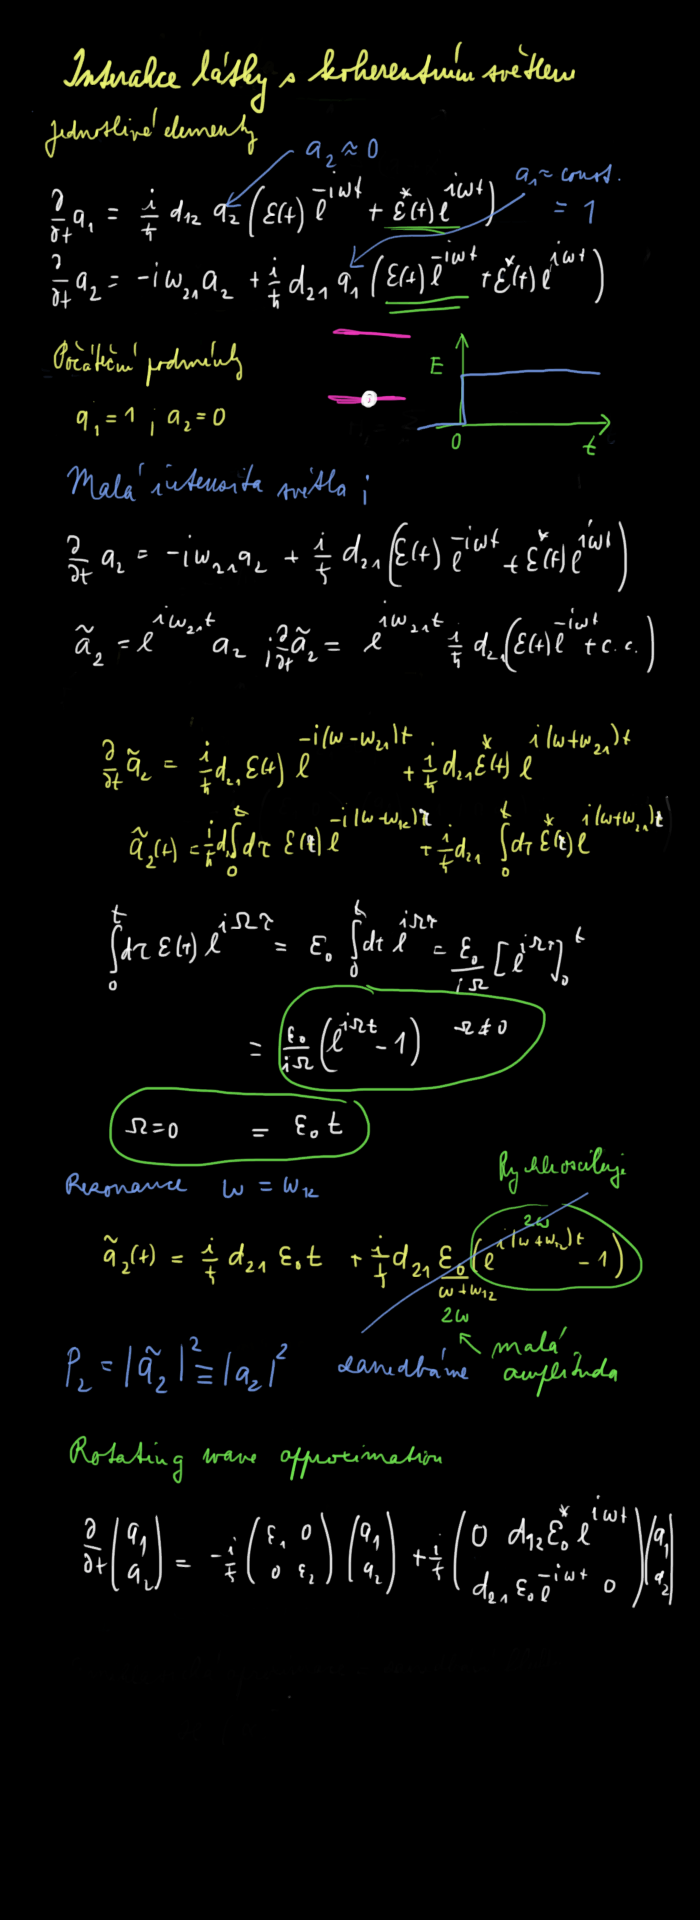 Interakce látky s koherentním světlem
jednotlivé elementy
a₂ ≈ 0
a₁ ≈ const. = 1
∂/∂t a₁ = i/ħ d₁₂ a₂ (ℰ(t) e^{-iωt} + ℰ*(t) e^{iωt})
∂/∂t a₂ = -iω₂₁a₂ + i/ħ d₂₁ a₁ (ℰ(t) e^{-iωt} + ℰ*(t) e^{iωt})
Počáteční podmínky
a₁ = 1 ; a₂ = 0
E
0
t
Malá intensita světla ;
∂/∂t a₂ = -iω₂₁a₂ + i/ħ d₂₁ (ℰ(t) e^{-iωt} + ℰ*(t) e^{iωt})
ã₂ = e^{iω₂₁t} a₂ ; ∂/∂t ã₂ = e^{iω₂₁t} i/ħ d₂₁ (ℰ(t) e^{-iωt} + c.c.)
∂/∂t ã₂ = i/ħ d₂₁ ℰ(t) e^{-i(ω-ω₂₁)t} + i/ħ d₂₁ ℰ*(t) e^{i(ω+ω₂₁)t}
ã₂(t) = i/ħ d₂₁ ∫₀ᵗ dτ ℰ(τ) e^{-i(ω-ω₁₂)τ} + i/ħ d₂₁ ∫₀ᵗ dτ ℰ*(τ) e^{i(ω+ω₂₁)τ}
∫₀ᵗ dτ ℰ(τ) e^{iΩτ} = ℰ₀ ∫₀ᵗ dτ e^{iΩτ} = ℰ₀/iΩ [e^{iΩτ}]₀ᵗ
= ℰ₀/iΩ (e^{iΩt} - 1) Ω ≠ 0
Ω = 0 = ℰ₀ t
Rychle osciluje
Resonance ω = ω₁₂
ã₂(t) = i/ħ d₂₁ ℰ₀ t + i/ħ d₂₁ ℰ₀/(ω+ω₁₂) (e^{i(ω+ω₁₂)t} - 1)
2ω
2ω
P₂ = |ã₂|² ≡ |a₂|² zanedbáme
malá amplituda
Rotating wave approximation
∂/∂t (a₁ a₂) = -i/ħ (ε₁ 0 0 ε₂) (a₁ a₂) + i/ħ (0 d₁₂ℰ₀* e^{iωt} d₂₁ ℰ₀ e^{-iωt} 0) (a₁ a₂)